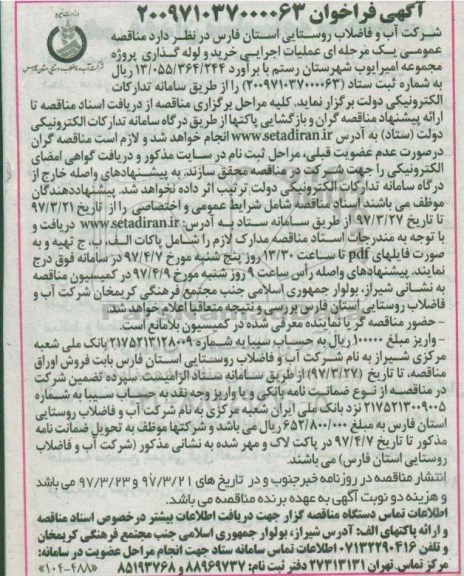 آگهی فراخوان ۲۰۰۹۷۱۰۳۷۰۰۰۰۶۳
شرکت آب و فاضلاب روستایی استان فارس در نظر دارد مناقصه
عمومی یک مرحله ای عملیات اجرایی خرید و لوله گذاری پروژه
مجموعه امیرایوب شهرستان رستم با برآورد ۱۳/۰۵۵/۳۶۴/۲۴۴ ریال
به شماره ثبت ستاد (۲۰۰۹۷۱۰۳۷۰۰۰۰۶۳) را از طریق سامانه تدارکات
الکترونیکی دولت برگزار نماید. کلیه مراحل برگزاری مناقصه از دریافت اسناد مناقصه تا
ارائه پیشنهاد مناقصه گران و بازگشایی پاکتها از طریق درگاه سامانه تدارکات الکترونیکی
دولت (ستاد) به آدرس www.setadiran.ir انجام خواهد شد و لازم است مناقصه گران
درصورت عدم عضویت قبلی، مراحل ثبت نام در سایت مذکور و دریافت گواهی امضای
الکترونیکی را جهت شرکت در مناقصه محقق سازند. به پیشنهادهای واصله خارج از
درگاه سامانه تدارکات الکترونیکی دولت ترتیب اثر داده نخواهد شد. پیشنهاددهندگان
موظف می باشند اسناد مناقصه شامل شرایط عمومی و اختصاصی را از تاریخ ۹۷/۳/۲۱
تا تاریخ ۹۷/۳/۲۷ از طریق سامانه ستاد به آدرس: www.setadiran.ir دریافت و
با توجه به مندرجات اسناد مناقصه مدارک لازم را شامل پاکات الف، ب، ج تهیه و به
صورت فایلهای pdf تا ساعت ۱۳/۳۰ روز پنج شنبه مورخ ۹۷/۴/۷ در سامانه فوق درج
نمایند. پیشنهادهای واصله رأس ساعت ۹ روز شنبه مورخ ۹۷/۴/۹ در کمیسیون مناقصه
به نشانی شیراز، بولوار جمهوری اسلامی جنب مجتمع فرهنگی کریمخان شرکت آب و
فاضلاب روستایی استان فارس بررسی و نتیجه متعاقبا اعلام خواهد شد.
- حضور مناقصه گر یا نماینده معرفی شده در کمیسیون بلامانع است.
- واریز مبلغ ۱۰۰۰۰۰ ریال به حساب سیبا به شماره ۲۱۷۵۲۱۳۱۲۸۰۰۹ بانک ملی شعبه
مرکزی شیراز به نام شرکت آب و فاضلاب روستایی استان فارس بابت فروش اوراق
مناقصه، تا تاریخ (۹۷/۳/۲۷) از طریق سامانه ستاد الزامیست. سپرده تضمین شرکت
در مناقصه از نوع ضمانت نامه بانکی و یا واریز وجه نقد به حساب سیبا به شماره
۲۱۷۵۲۱۳۰۰۹۰۰۵ نزد بانک ملی ایران شعبه مرکزی به نام شرکت آب و فاضلاب روستایی
استان فارس به مبلغ ۶۵۲/۸۰۰/۰۰۰ ریال می باشد و شرکتها موظف به تحویل ضمانت نامه
مذکور تا تاریخ ۹۷/۴/۷ در پاکت لاک و مهر شده به نشانی مذکور (شرکت آب و فاضلاب
روستایی استان فارس) می باشند.
انتشار مناقصه در روزنامه خبرجنوب و در تاریخ های ۹۷/۳/۲۱ و ۹۷/۳/۲۳ می باشد
و هزینه دو نوبت آگهی به عهده برنده مناقصه می باشد.
اطلاعات تماس دستگاه مناقصه گزار جهت دریافت اطلاعات بیشتر درخصوص اسناد مناقصه
و ارائه پاکتهای الف: آدرس شیراز، بولوار جمهوری اسلامی جنب مجتمع فرهنگی کریمخان
و تلفن ۰۷۱۳۲۲۹۰۴۱۶ اطلاعات تماس سامانه ستاد جهت انجام مراحل عضویت در سامانه:
مرکز تماس تهران ۲۷۳۱۳۱۳۱ دفتر ثبت نام: ۸۸۹۶۹۷۳۷ و ۸۵۱۹۳۷۶۸ «۱۰۴-۴۸۸»